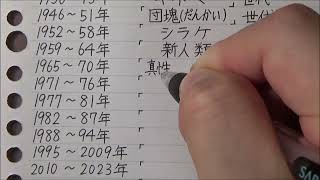 1946～51年 「団塊(だんかい)」世代
1952～58年 「シラケ
1959～64年 「新人類
1965～70年 「真性
1971～76年 「
1977～81年 「
1982～87年 「
1988～94年 「
1995～2009年
2010～2023年